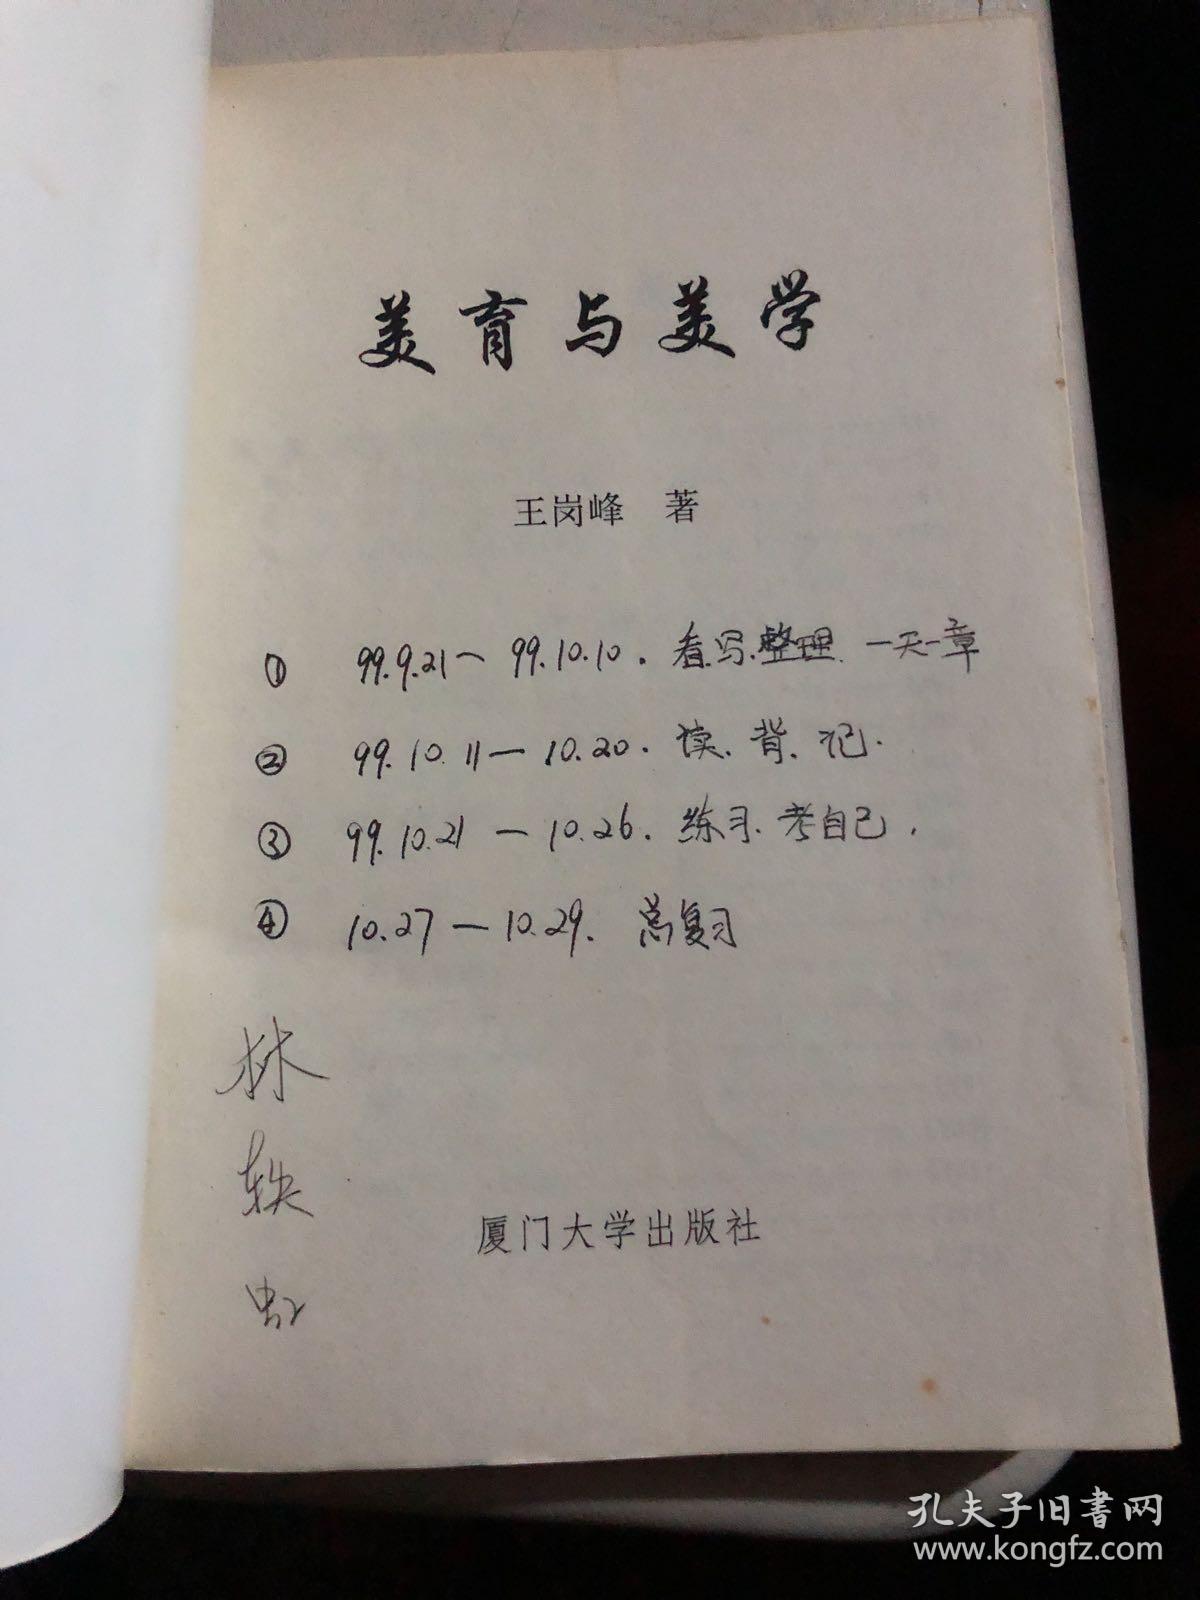 美育与美学
王岗峰 著
① 99.9.21～99.10.10.看.写.整理.一天一章
② 99.10.11—10.20.读.背.记.
③ 99.10.21—10.26.练习.考自己.
④ 10.27—10.29.总复习
林
轶
虹
厦门大学出版社
孔夫子旧书网
www.kongfz.com